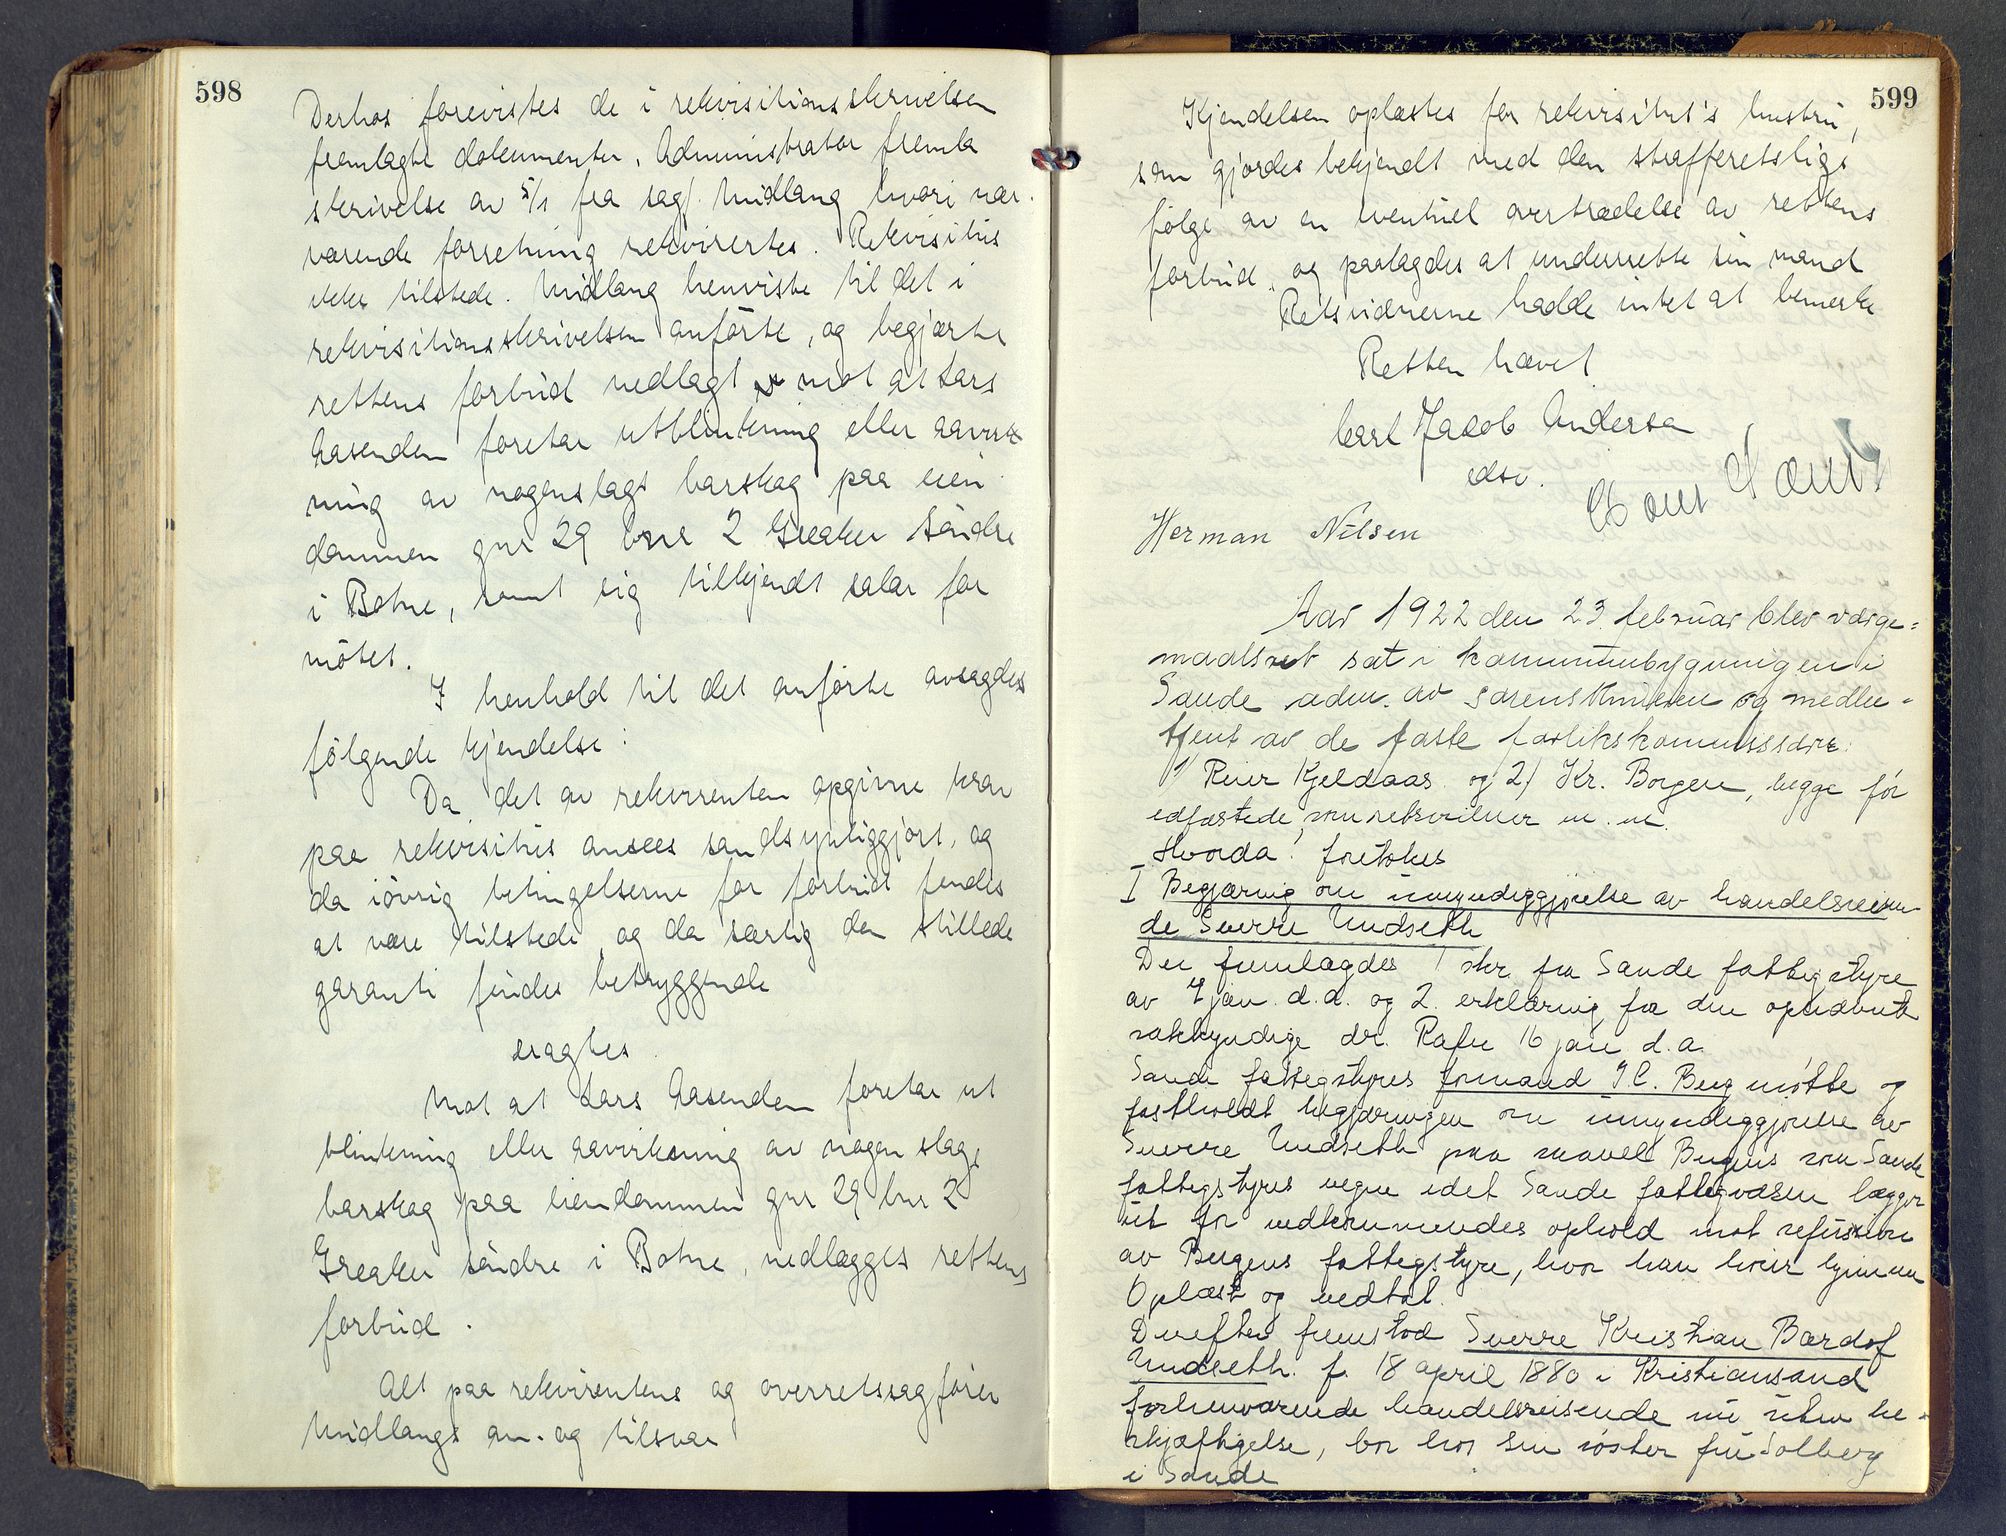 598
Derhos forevistes de i rekvisitionsskrivelsen
fremlagte dokumenter. Administrator fremla
skrivelse av 5/1 fra sagf. Midlang hvori nær-
værende forretning rekvirertes. Rekvisitus
ikke tilstede. Midlang henviste til det i
rekvisitionsskrivelsen anförte, og begjærte
rettens forbud nedlagt mot at Lars
Aasenden foretar utblinkning eller aavirk
ning av nogenslags barskog paa eien
dommen gnr 29 bnr 2 Greaker söndre
i Botne, samt sig tilkjendt salær for
mötet.
I henhold til det anförte avsagdes
fölgende kjendelse:
Da det av rekvirenten opgivne krav
paa rekvisitus ansees sandsynliggjort, og
da iövrig betingelserne for forbud findes
at være tilstede og da særlig den stillede
garanti findes betryggende
eragtes
Mot at Lars Aasenden foretar ut
blinkning eller aavirkning av nogen slags
barskog paa eiendommen gnr 29 bnr 2
Greaker söndre i Botne, nedlægges rettens
forbud.
Alt paa rekvirentens og overretssagförer
Midlangs an- og tilsvar
599
Kjendelsen oplæstes for rekvisitus's hustru,
som gjordes bekjendt med den strafferetslige
følge av en eventuel overtrædelse av rettens
forbud, og paalagdes at underrette sin mand
Retsvidnerne hadde intet at bemerke
Retten hævet
Carl Jacob Andersen
edsv.
Herman Nilsen
Aar 1922 den 23. februar blev værge-
maalsret sat i kommunebygningen i
Sande adm. av sorenskriveren og medbe-
tjent av de faste forlikskommissærer:
1/ Reier Kjeldaas og 2/ Kr. Borgen, begge før
edfæstede som retsvidner m. m.
Hvorda! foretokes
I Begjæring om umyndiggjørelse av handelsreisen-
de Sverre Undseth
Der fremlagdes 1 skr fra Sande fattigstyre
av 4 jan. d. a. og 2. erklæring fra den opnævnte
sakkyndige dr. Rafn 16 jan d. a.
Sande fattigstyres formand I. C. Berg møtte og
fastholdt begjæringen om umyndiggjørelse av
Sverre Undseth paa saavel Bergens som Sande
fattigstyres vegne idet Sande fattigvæsen lægger
ut for vedkommendes ophold mot refusion
av Bergens fattigstyre, hvor han hører hjemme
Oplæst og vedtat.
Derefter fremstod Sverre Kristian Bærdof
Undseth. f. 18 april 1880 i Kristiansand
forhenværende handelsreisende nu uten be-
skjæftigelse, bor hos sin søster fru Solberg
i Sande